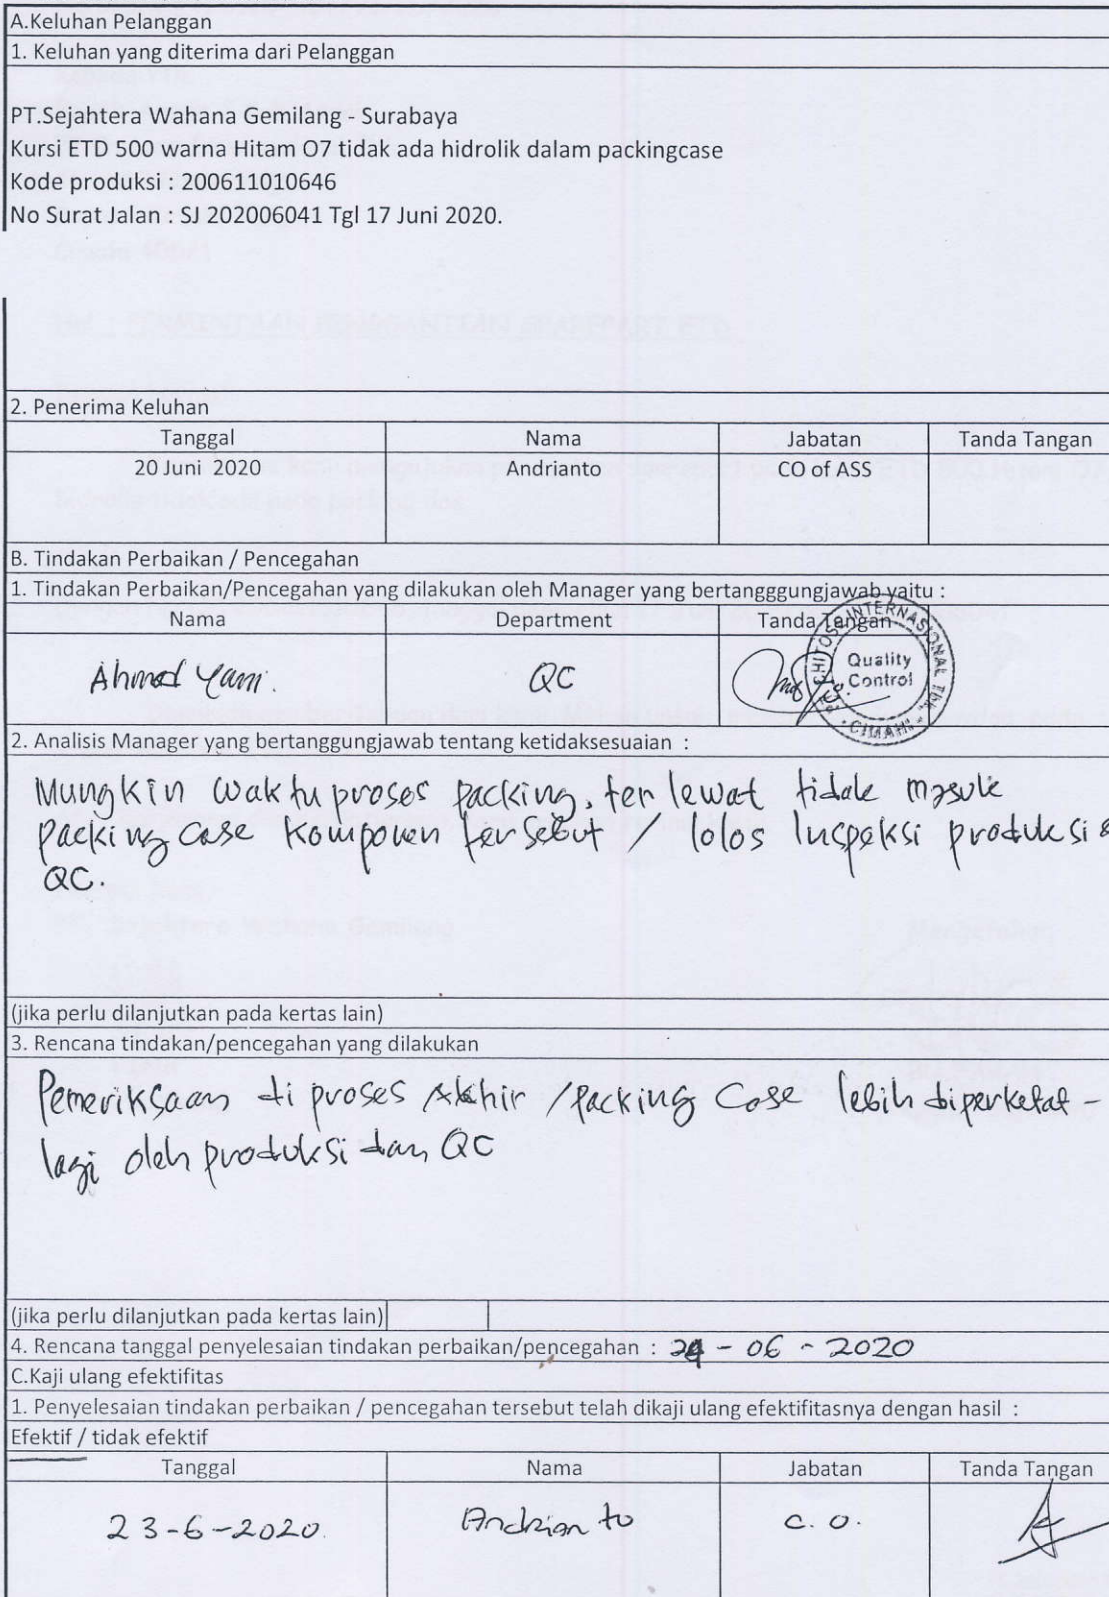 A.Keluhan Pelanggan
1. Keluhan yang diterima dari Pelanggan
PT.Sejahtera Wahana Gemilang - Surabaya
Kursi ETD 500 warna Hitam O7 tidak ada hidrolik dalam packingcase
Kode produksi : 200611010646
No Surat Jalan : SJ 202006041 Tgl 17 Juni 2020.
2. Penerima Keluhan
Tanggal Nama Jabatan Tanda Tangan
20 Juni 2020 Andrianto CO of ASS
B. Tindakan Perbaikan / Pencegahan
1. Tindakan Perbaikan/Pencegahan yang dilakukan oleh Manager yang bertangggungjawab yaitu :
Nama Department Tanda Tangan
Ahmad Yani. QC
CHITOSE INTERNASIONAL Tbk.
Quality
Control
CIMAHI
2. Analisis Manager yang bertanggungjawab tentang ketidaksesuaian :
Mungkin waktu proses packing, terlewat tidak masuk
packing case komponen tersebut / lolos Inspeksi produksi &
QC.
(jika perlu dilanjutkan pada kertas lain)
3. Rencana tindakan/pencegahan yang dilakukan
Pemeriksaan di proses Akhir / Packing Case lebih diperketat -
lagi oleh produksi dan QC
(jika perlu dilanjutkan pada kertas lain)
4. Rencana tanggal penyelesaian tindakan perbaikan/pencegahan : - 06 - 2020
C.Kaji ulang efektifitas
1. Penyelesaian tindakan perbaikan / pencegahan tersebut telah dikaji ulang efektifitasnya dengan hasil :
Efektif / tidak efektif
Tanggal Nama Jabatan Tanda Tangan
23-6-2020. Andrianto C. O.